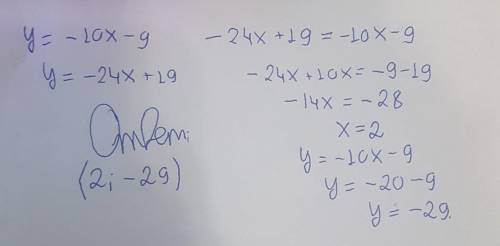 y = -10x - 9
y = -24x + 19
Ответ:
(2; -29)
-24x + 19 = -10x - 9
-24x + 10x = -9 - 19
-14x = -28
x = 2
y = -10x - 9
y = -20 - 9
y = -29.